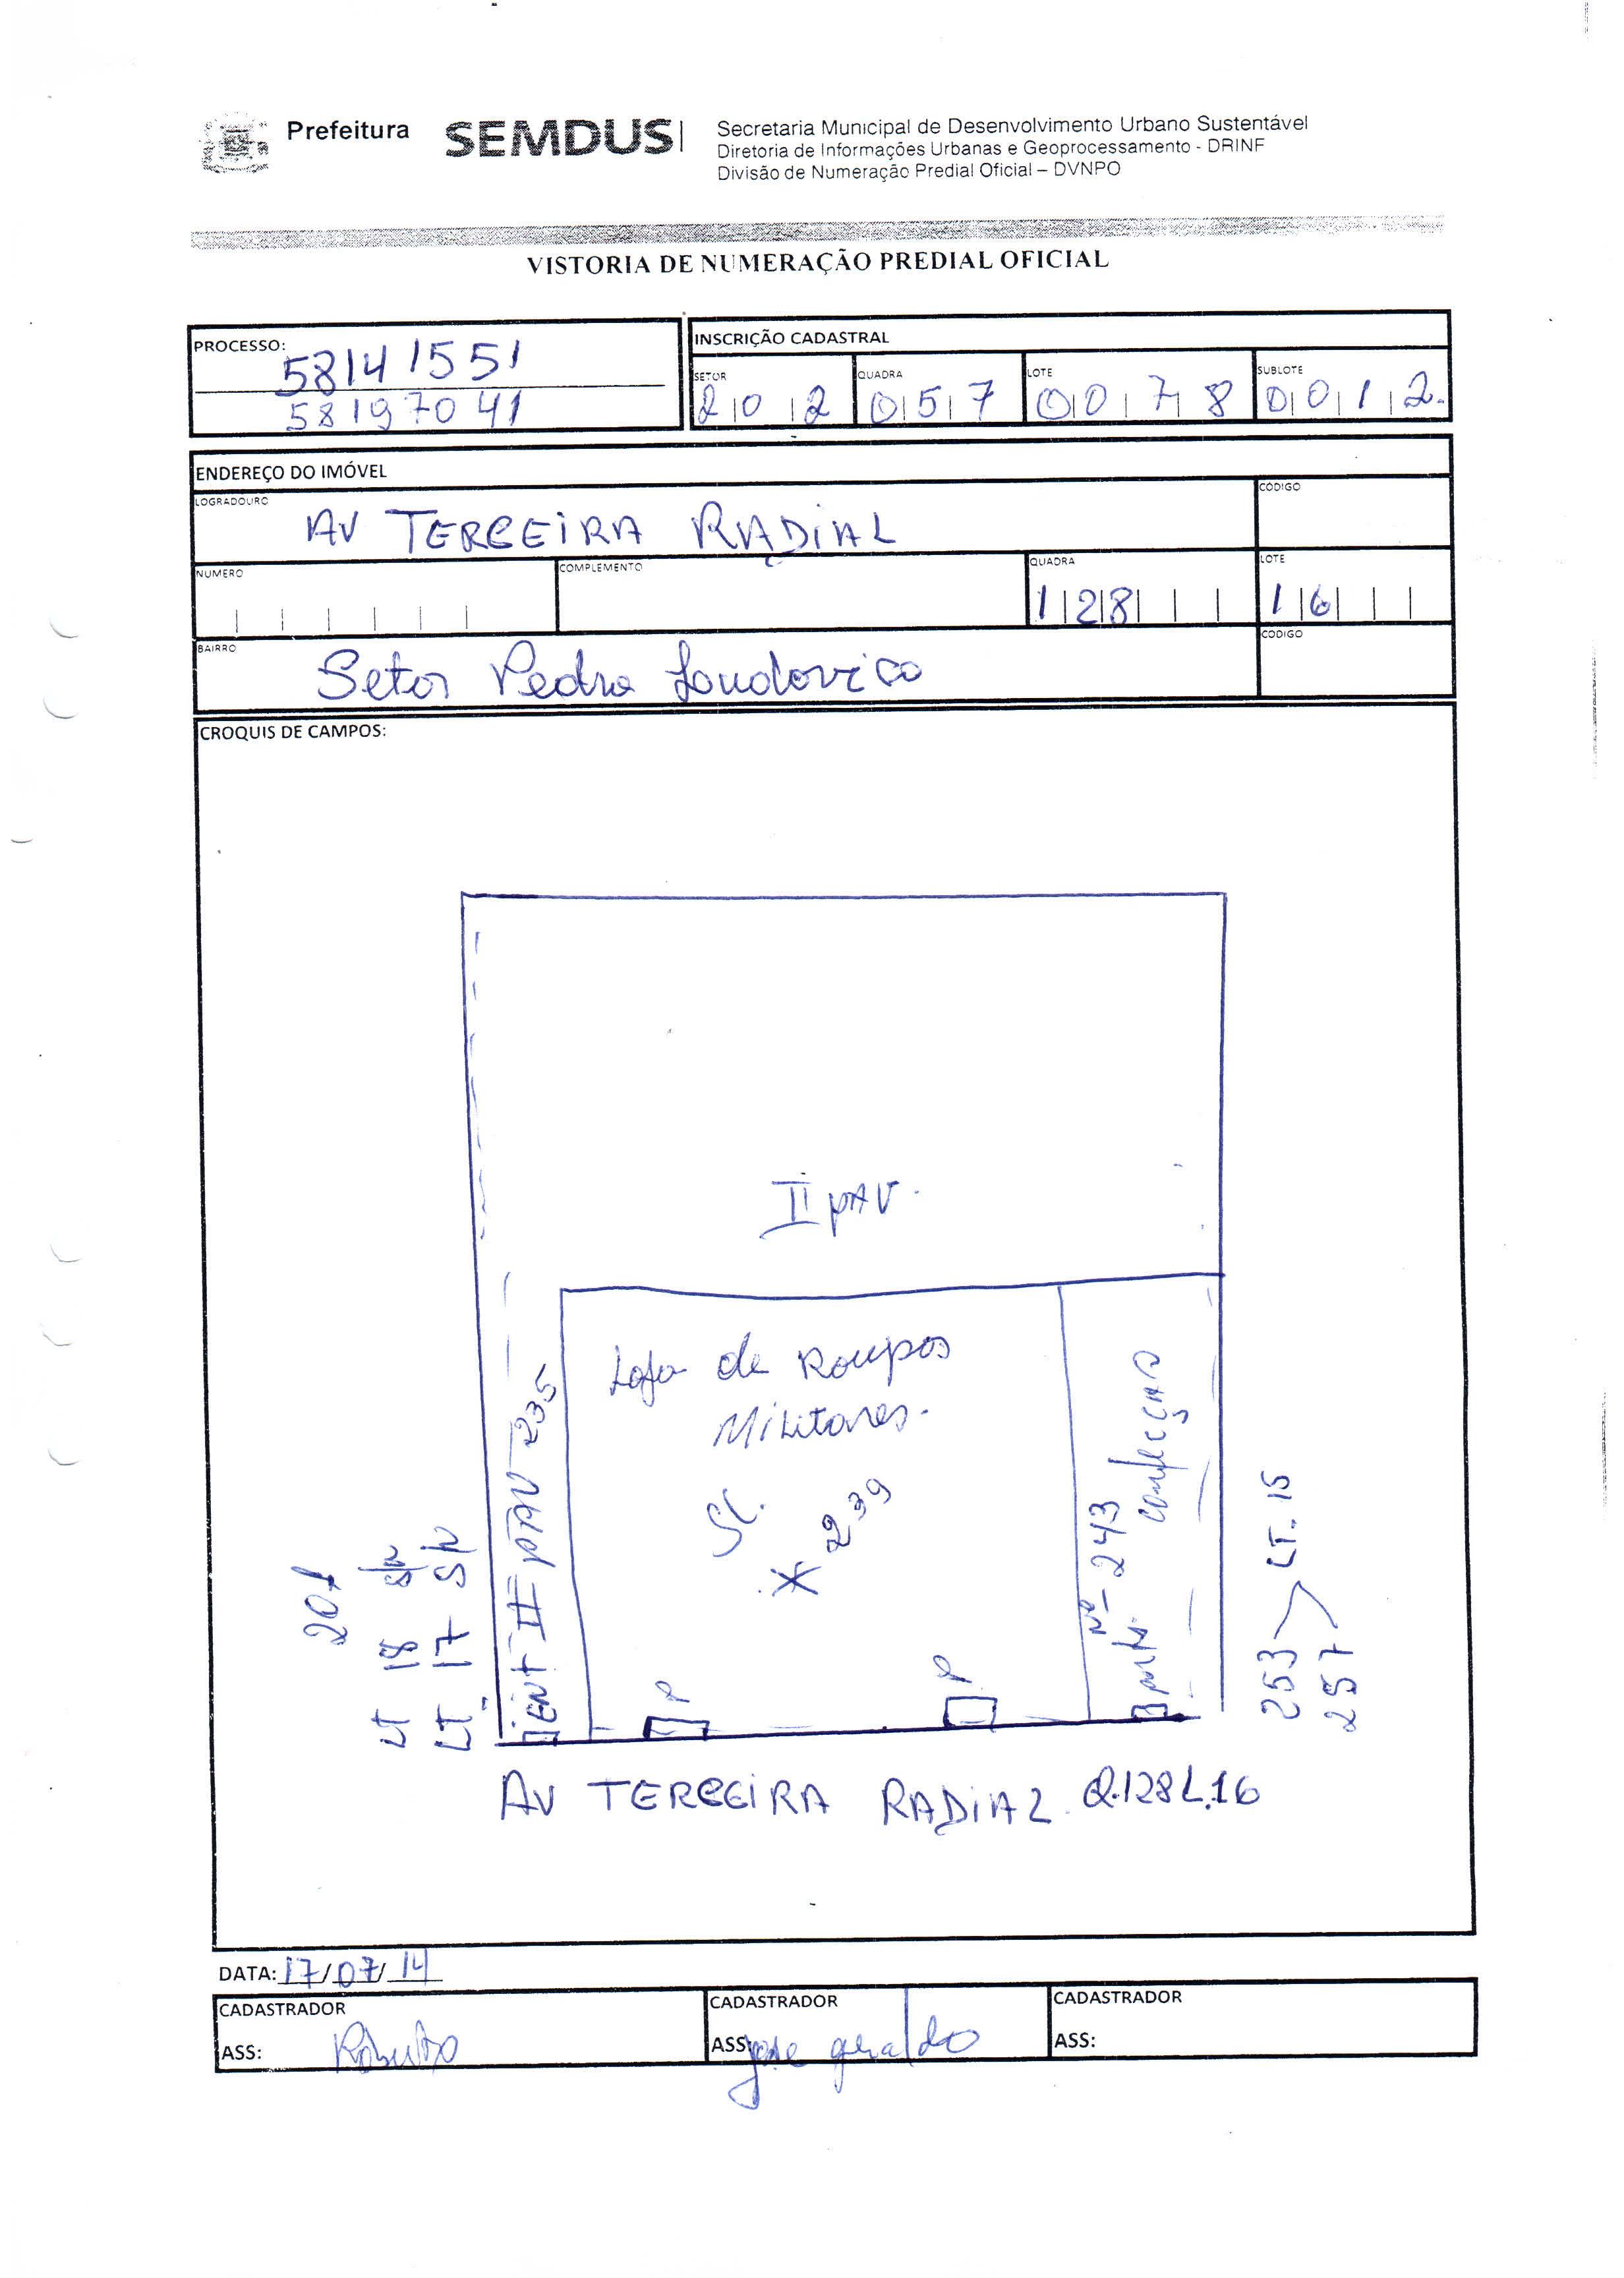 Prefeitura SEMDUS
Secretaria Municipal de Desenvolvimento Urbano Sustentável
Diretoria de Informações Urbanas e Geoprocessamento - DRINF
Divisão de Numeração Predial Oficial – DVNPO
VISTORIA DE NUMERAÇÃO PREDIAL OFICIAL
PROCESSO: 58141551
58197041
INSCRIÇÃO CADASTRAL
SETOR 202 QUADRA 057 LOTE 0078 SUBLOTE 0012
ENDEREÇO DO IMÓVEL
LOGRADOURO AV TERCEIRA RADIAL CÓDIGO
NUMERO COMPLEMENTO QUADRA 128 LOTE 16
BAIRRO Setor Pedro Loudovico CODIGO
CROQUIS DE CAMPOS:
II PAV.
Loja de Roupas
Militares.
SL.
X 239
ENT II PAV 235
Nº 243
confecção
201
LT 18 S/N
LT 17 S/N
253 LT. 15
257
P
P
AV TERCEIRA RADIAL Q.128 L.16
DATA: 17/07/14
CADASTRADOR
ASS: Roberto
CADASTRADOR
ASS: jose geraldo
CADASTRADOR
ASS: